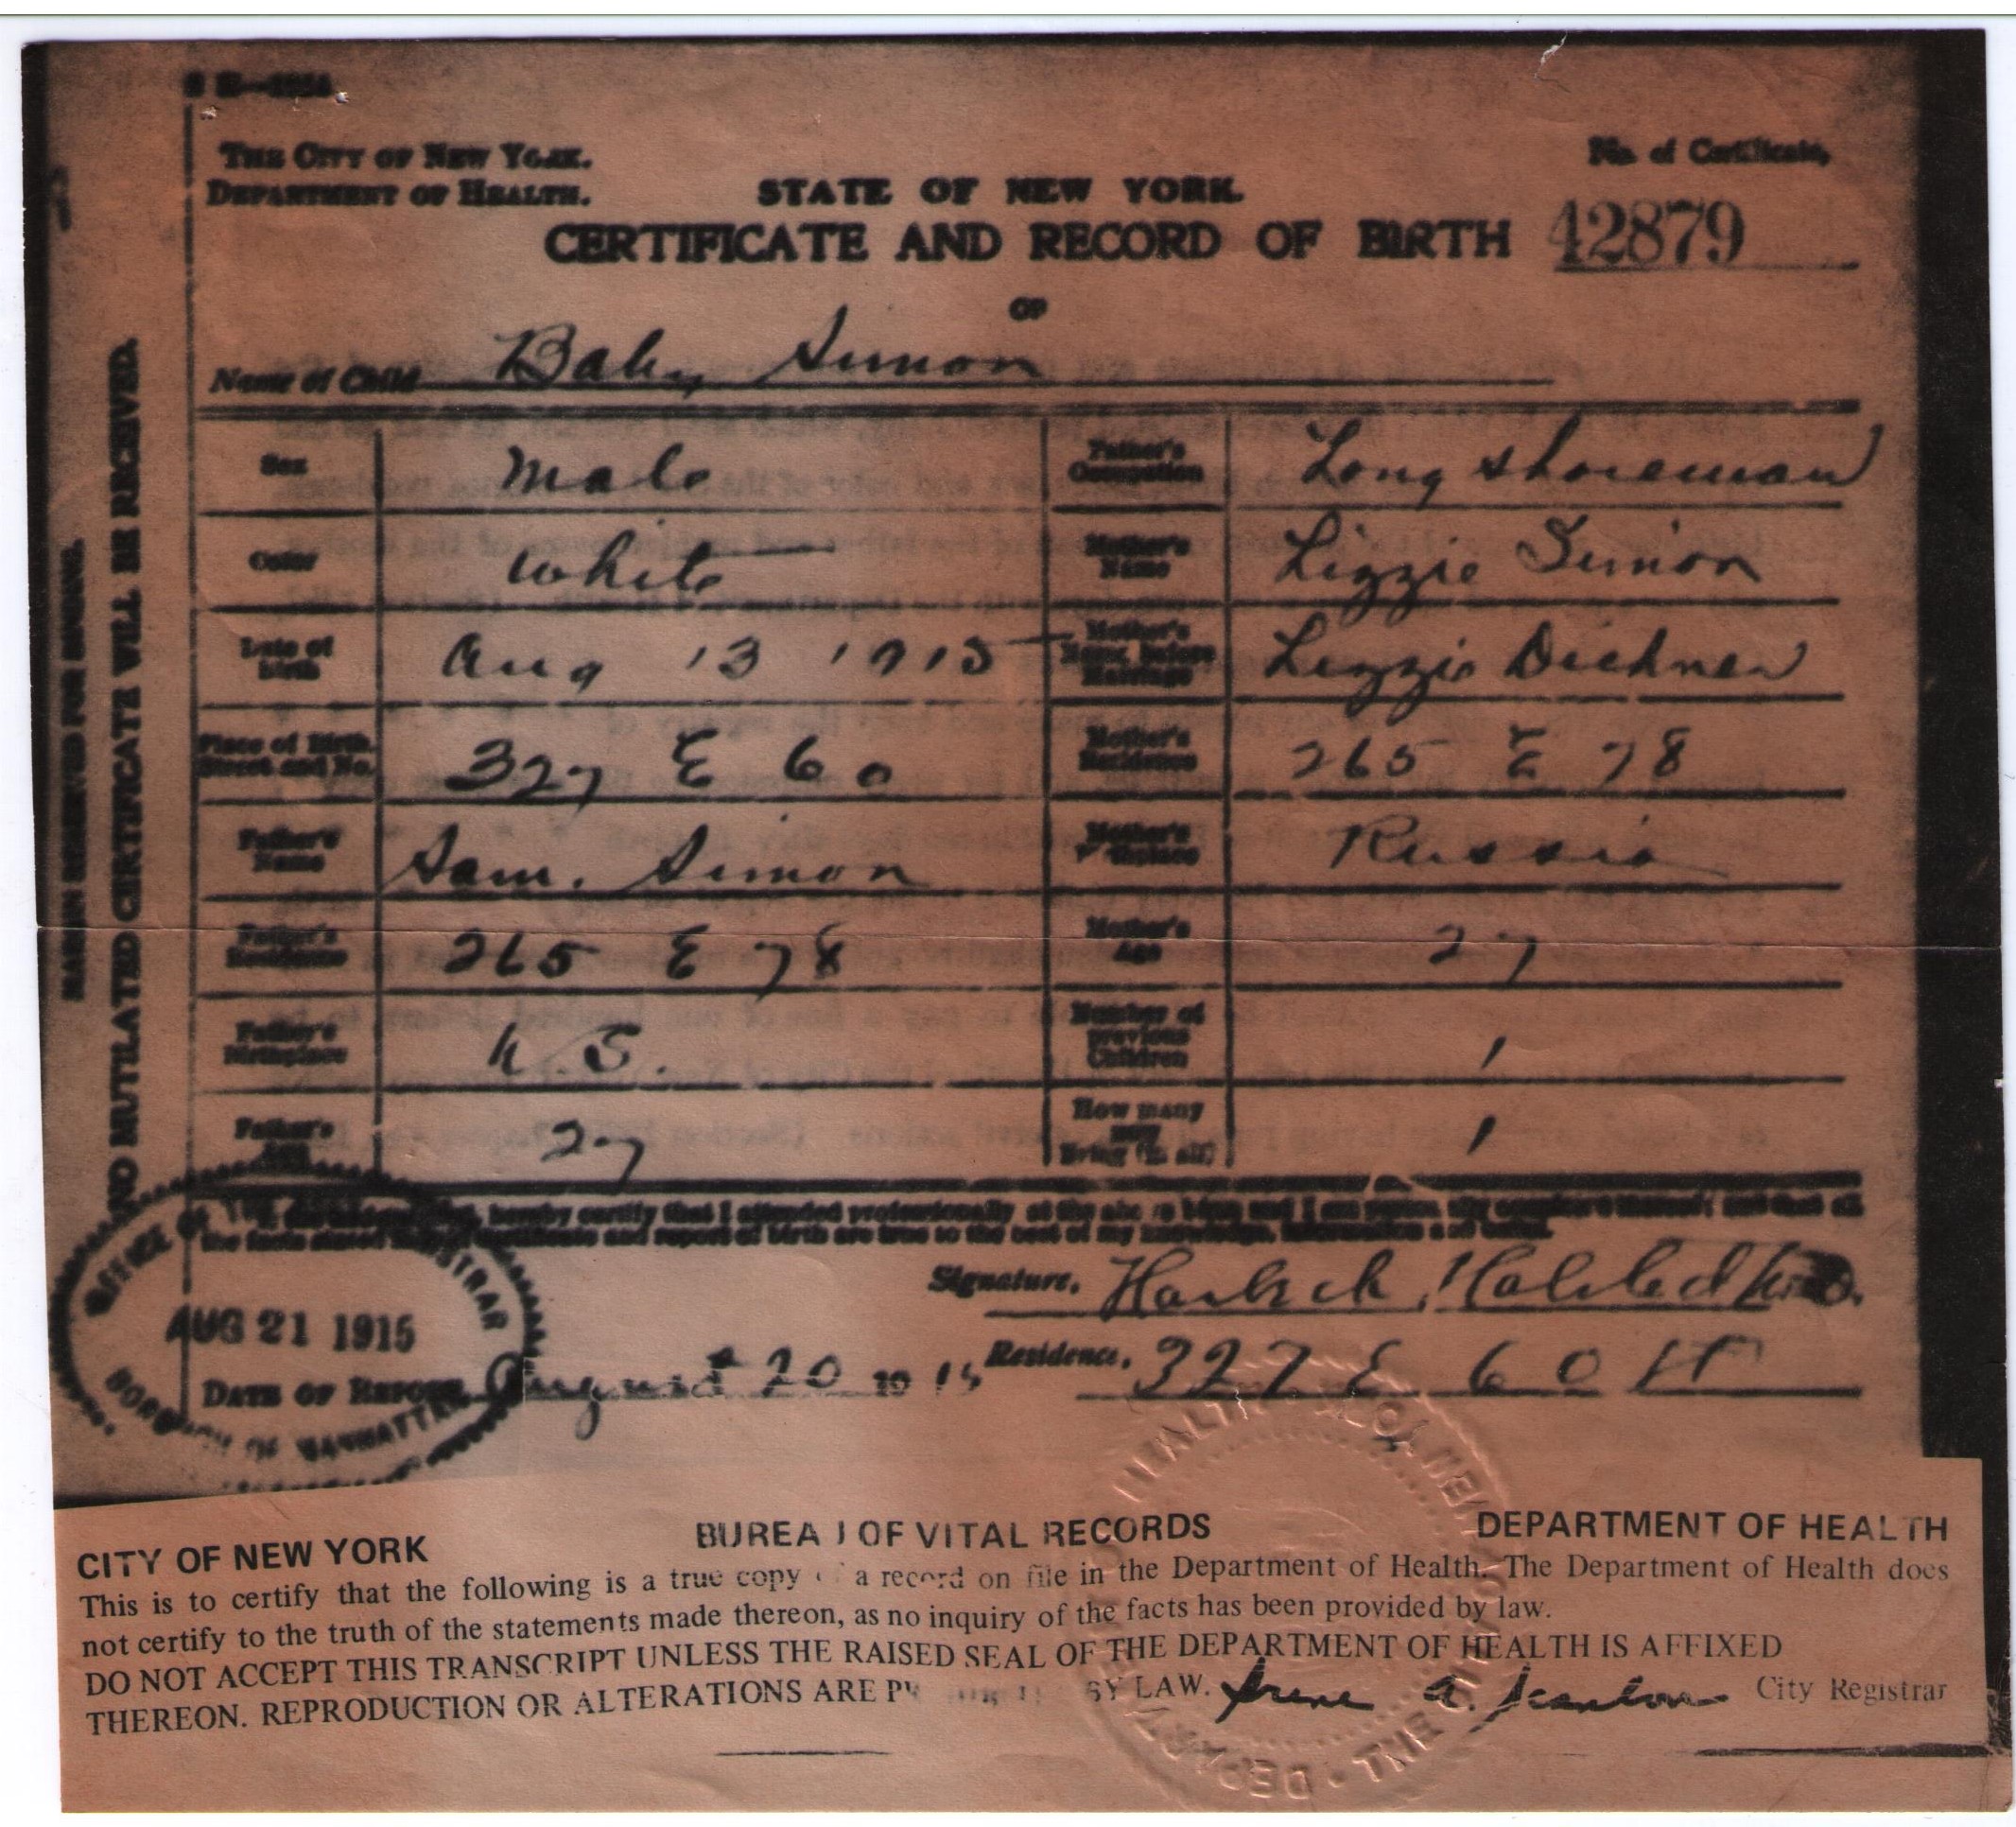 THE CITY OF NEW YORK.
DEPARTMENT OF HEALTH.
No. of Certificate,
STATE OF NEW YORK.
CERTIFICATE AND RECORD OF BIRTH
42879
OF
Name of Child Baby Simon
Sex Male
Father's Occupation Long shoreman
Color White
Mother's Name Lizzie Simon
Date of Birth Aug 13 1915
Mother's Name before Marriage Lizzie
Place of Birth, Street and No. 327 E 60
Mother's Residence 265 E 78
Father's Name Sam. Simon
Mother's Birthplace Russia
Father's Residence 265 E 78
Mother's Age 27
Father's Birthplace U.S.
Number of previous Children 1
Father's Age 27
How many now living (in all) 1
hereby certify that I attended professionally at the above birth and I am
and report of birth are true to the best of my knowledge, information and belief.
Signature,
Residence, 327 E 60 St
DATE OF REPORT August 20 1915
OFFICE OF THE REGISTRAR
AUG 21 1915
BOROUGH OF MANHATTAN
MARGIN RESERVED FOR BINDING.
NO MUTILATED CERTIFICATE WILL BE RECEIVED.
CITY OF NEW YORK BUREAU OF VITAL RECORDS DEPARTMENT OF HEALTH
This is to certify that the following is a true copy of a record on file in the Department of Health. The Department of Health does
not certify to the truth of the statements made thereon, as no inquiry of the facts has been provided by law.
DO NOT ACCEPT THIS TRANSCRIPT UNLESS THE RAISED SEAL OF THE DEPARTMENT OF HEALTH IS AFFIXED
THEREON. REPRODUCTION OR ALTERATIONS ARE BY LAW. Irene A. Scanlon City Registrar